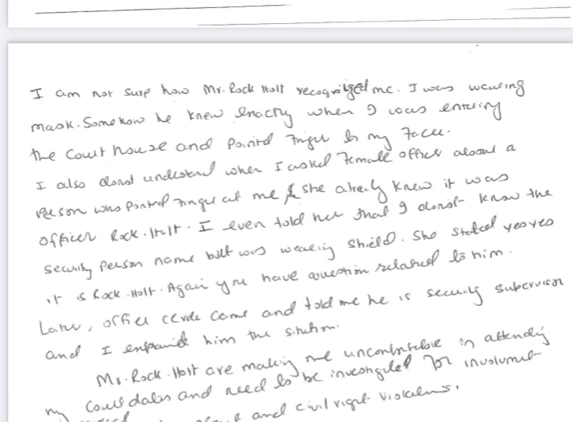 I am not sure how Mr. Rock Holt recognized me. I was wearing
mask. Somehow he knew exactly when I was entering
the Court house and pointed finger to my face.
I also donot understand when I asked Female officer about a
person who pointed finger at me & she already knew it was
officer Rock. Holt. I even told her that I donot know the
security person name but was wearing shield. She stated yes yes
it is Rock. Holt. Again you have question related to him.
Later, officer came and told me he is security supervisor
and I explained him the situation.
Mr. Rock. Holt are making me uncomfortable in attending
my Court dates and need to be investigated for involvement
and civil right violations.